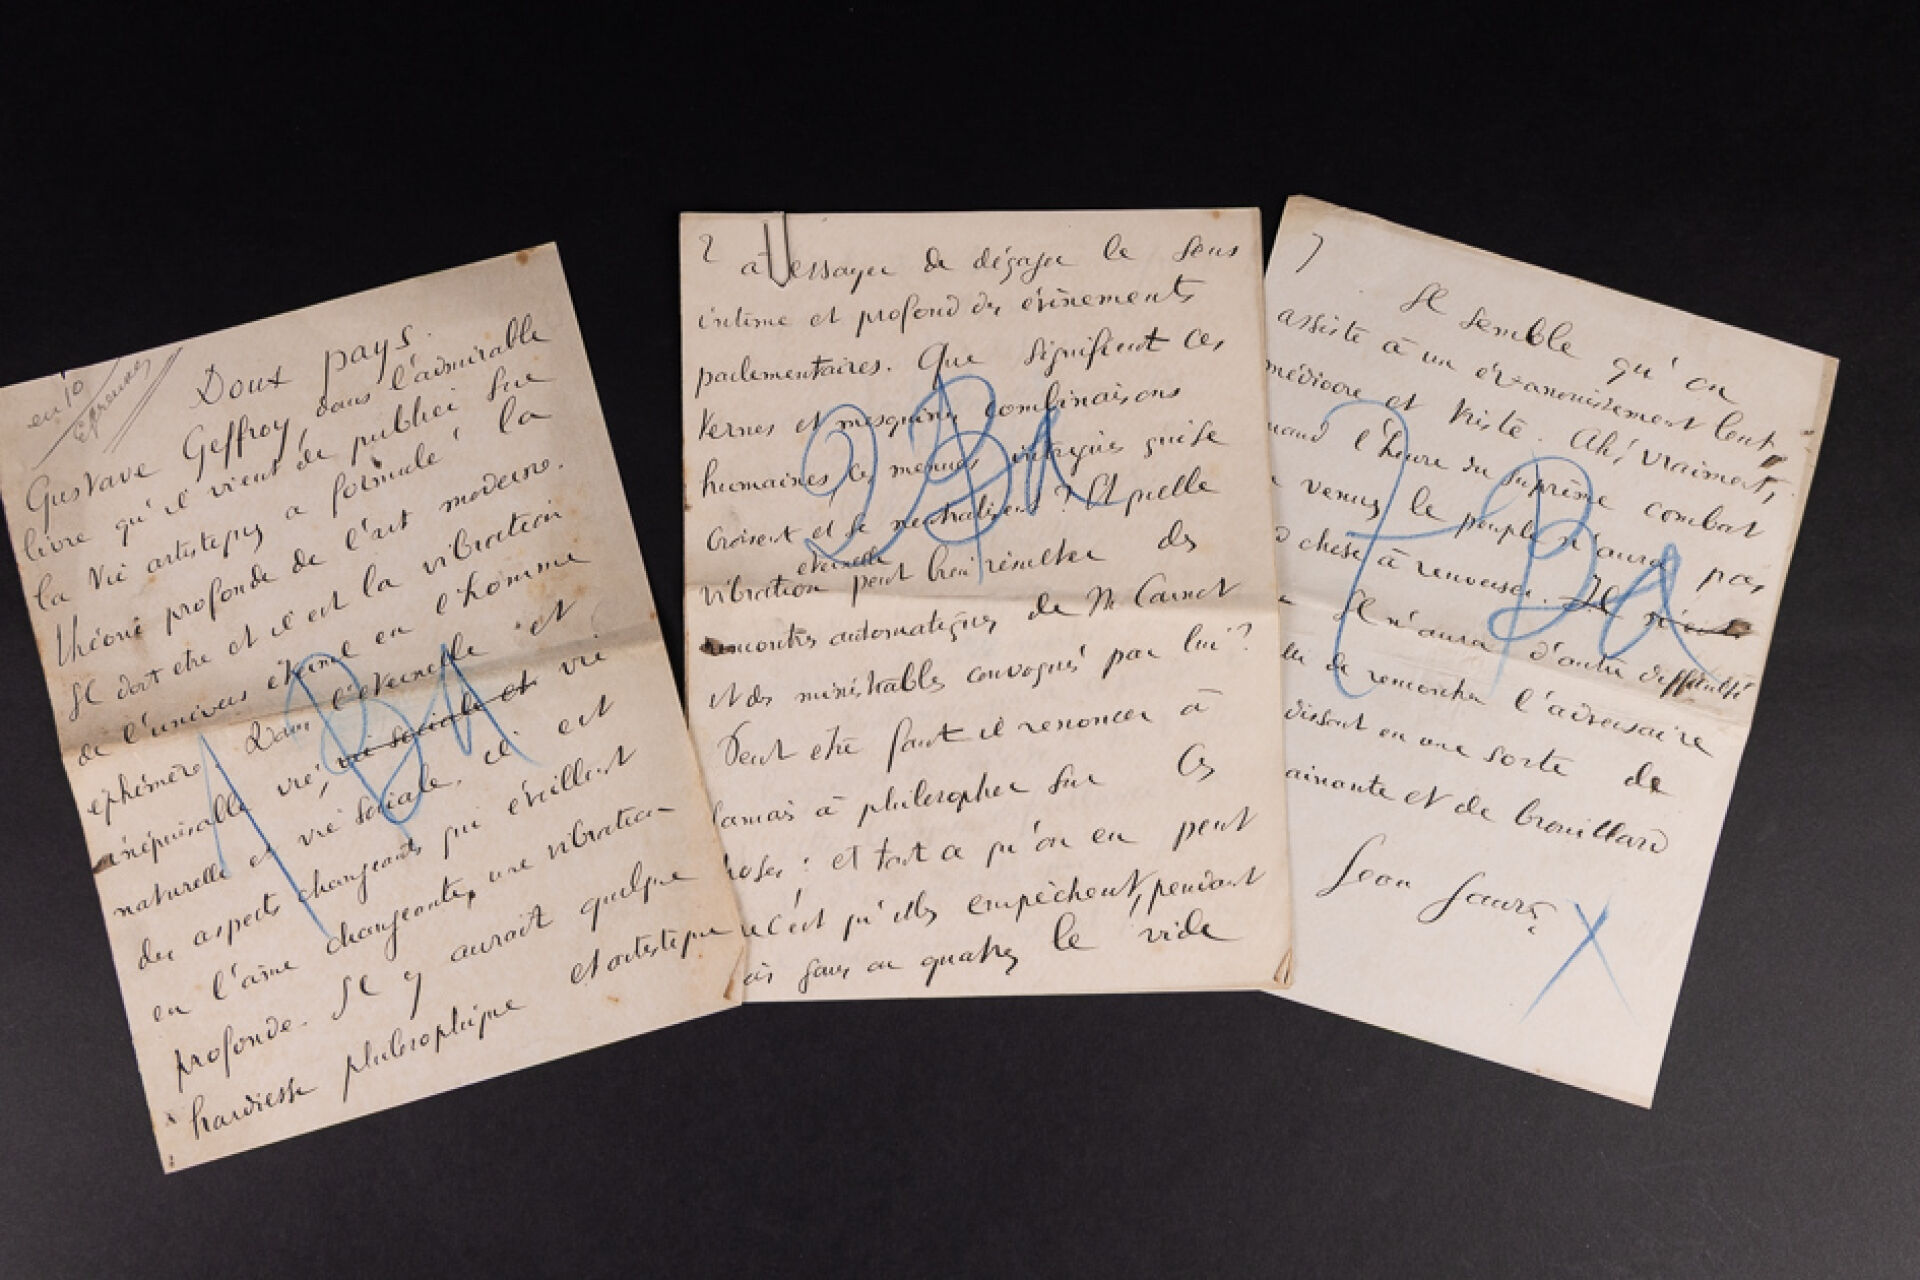 en 10
épreuves
Doux pays.
Gustave Geffroy, dans l'admirable
livre qu'il vient de publier sur
la Vie artistique a formulé la
théorie profonde de l'art moderne.
Il doit etre et il est la vibration
de l'univers éternel en l'homme
éphémère. Dans l'éternelle et
inépuisable vie, vie sociale et vie
naturelle et vie sociale, il est
des aspects changeants qui éveillent
en l'âme changeante, une vibration
profonde. Il y aurait quelque
hardiesse philosophique et artistique
1 BA
2
à essayer de dégager le sens
intime et profond des évènements
parlementaires. Que signifient ces
ternes et mesquines combinaisons
humaines, ces menues intrigues qui se
croisent et se neutralisent ? Et quelle
éternelle
vibration peut bien résulter des
rencontres automatiques de M. Carnot
et des ministrables convoqués par lui ?
Peut etre faut il renoncer à
jamais à philosopher sur ces
choses : et tout ce qu'on en peut
c'est qu'elles empêchent, pendant
trois jours ou quatre, le vide
2 BA
7
Il semble qu'on
assiste à un évanouissement lent,
médiocre et triste. Ah! vraiment,
quand l'heure du suprême combat
venue, le peuple n'aura pas
chose à renverser. Il n'
Il n'aura d'autre difficulté
de remorquer l'adversaire
en une sorte de
et de brouillard
Jean Jaurès
7 BA
X